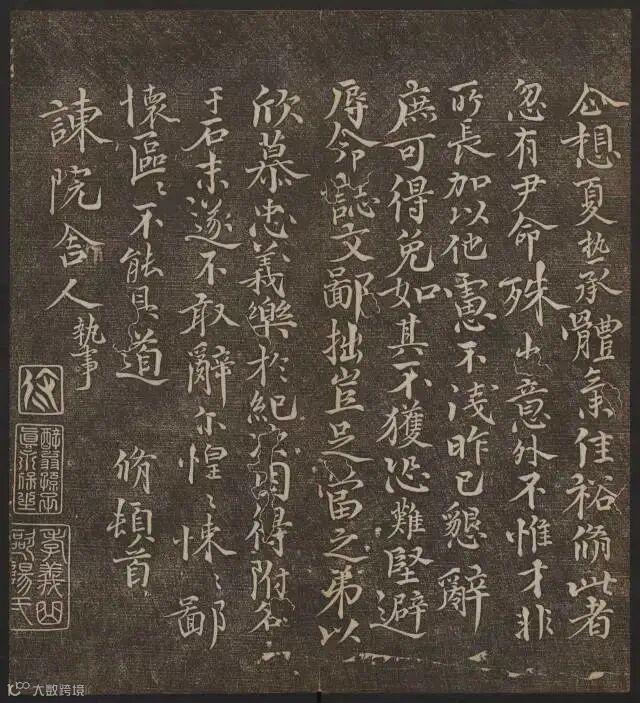 企想夏热承體氣佳裕脩此者
忽有尹命殊出意外不惟才非
所長加以他慮不淺昨已懇辭
庶可得免如其不獲恐難堅避
辱命誌文鄙拙豈足當之弟以
欣慕忠義樂於紀次因得附名
于石未遂不敢辭尔惶〻悚〻鄙
懷區〻不能具道 脩頓首
諫院舍人執事
大数跨境